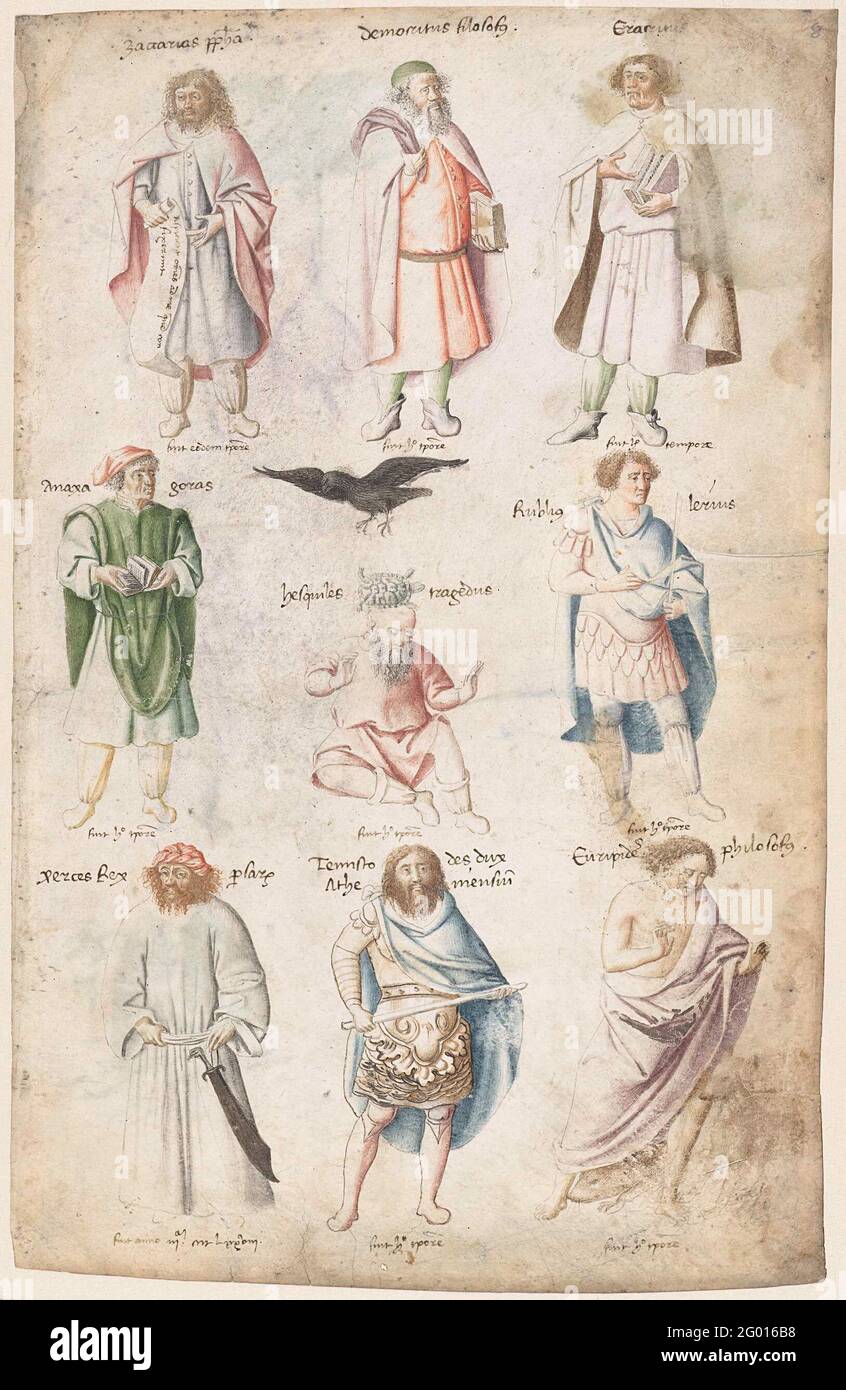 Zacarias pp̄ha
Democritus filosofus.
Eracritus
8
fuit eodem tpōre
fuit ho tpōre
fuit ho tempore
Anaxa goras
Rublius lerius
hesquiles tragedus.
fuit ho tpōre
fuit ho tpōre
fuit ho tpōre
Xerces Rex psarꝝ
Temisto des dux
Athe niensiū
Euripides philosofus.
fuit anno
fuit ho tpōre
fuit ho tpōre
alamy
Image ID: 2G016B8
www.alamy.com